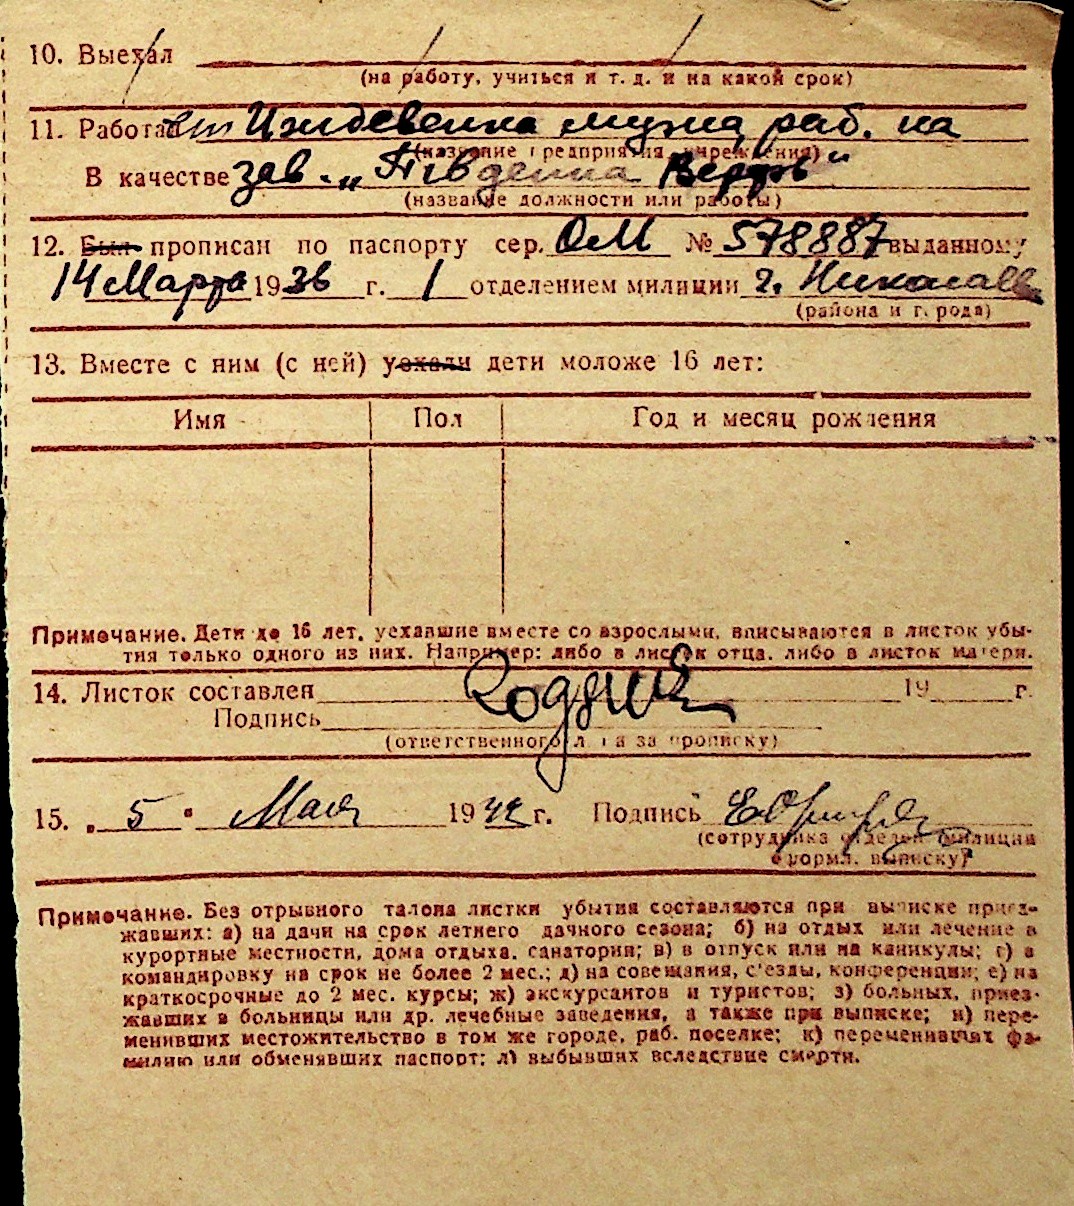 10. Выехал
(на работу, учиться и т. д. и на какой срок)
11. Работает Иждевенка мужа, раб. на
(название предприятия, учреждения)
В качестве зав. „Південна Верфь"
(название должности или работы)
12. Был прописан по паспорту сер. ОМ № 578887 выданному
14 Марта 1936 г. 1 отделением милиции г. Николаев
(района и города)
13. Вместе с ним (с ней) уехали дети моложе 16 лет:
Имя Пол Год и месяц рождения
Примечание. Дети до 16 лет, уехавшие вместе со взрослыми, вписываются в листок убы-
тия только одного из них. Например: либо в листок отца, либо в листок матери.
14. Листок составлен 19 г.
Подпись
(ответственного лица за прописку)
15. „ 5 " Мая 1942 г. Подпись
(сотрудника отделен. милиции
оформл. выписку)
Примечание. Без отрывного талона листки убытия составляются при выписке приез-
жавших: а) на дачи на срок летнего дачного сезона; б) на отдых или лечение в
курортные местности, дома отдыха, санатории; в) в отпуск или на каникулы; г) в
командировку на срок не более 2 мес.; д) на совещания, с'езды, конференции; е) на
краткосрочные до 2 мес. курсы; ж) экскурсантов и туристов; з) больных, приез-
жавших в больницы или др. лечебные заведения, а также при выписке; и) пере-
менивших местожительство в том же городе, раб. поселке; к) переменивших фа-
милию или обменявших паспорт; л) выбывших вследствие смерти.